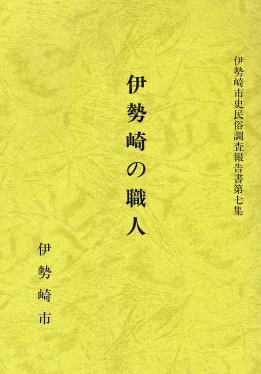 伊勢崎市史民俗調査報告書第七集
伊勢崎の職人
伊勢崎市